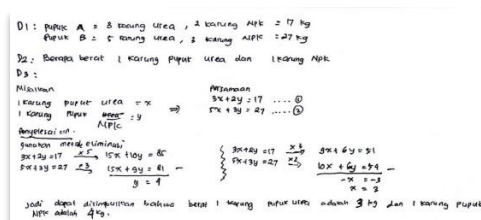 D1 : pupuk A = 3 karung urea, 2 karung NPK = 17 kg
Pupuk B = 5 karung urea, 3 karung NPK = 27 kg
D2 : Berapa berat 1 karung pupuk urea dan 1 karung NPK
D3 :
Misalkan
1 karung pupuk urea = x
1 karung pupuk NPK = y
⇒
Persamaan
3x+2y = 17 .... ①
5x + 3y = 27 .... ②
Penyelesaian.
gunakan metode eliminasi
3x+2y =17 x5 → 15x +10y = 85
5x+3y =27 x3 → 15x + 9y = 81 −
y = 4
3x+2y =17 x3 → 9x + 6y = 51
5x+3y =27 x2 → 10x + 6y = 54 −
-x = -3
x = 3
Jadi dapat disimpulkan bahwa berat 1 karung pupuk urea adalah 3 kg dan 1 karung pupuk
NPK adalah 4 kg.